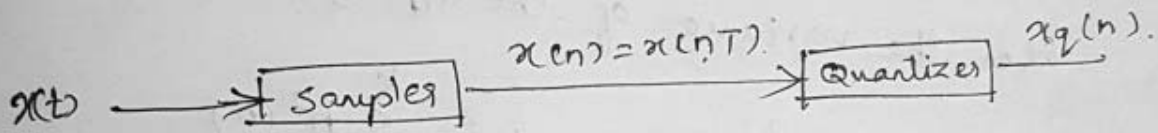 x(t)
Sampler
x(n) = x(nT).
Quantizer
xq(n).